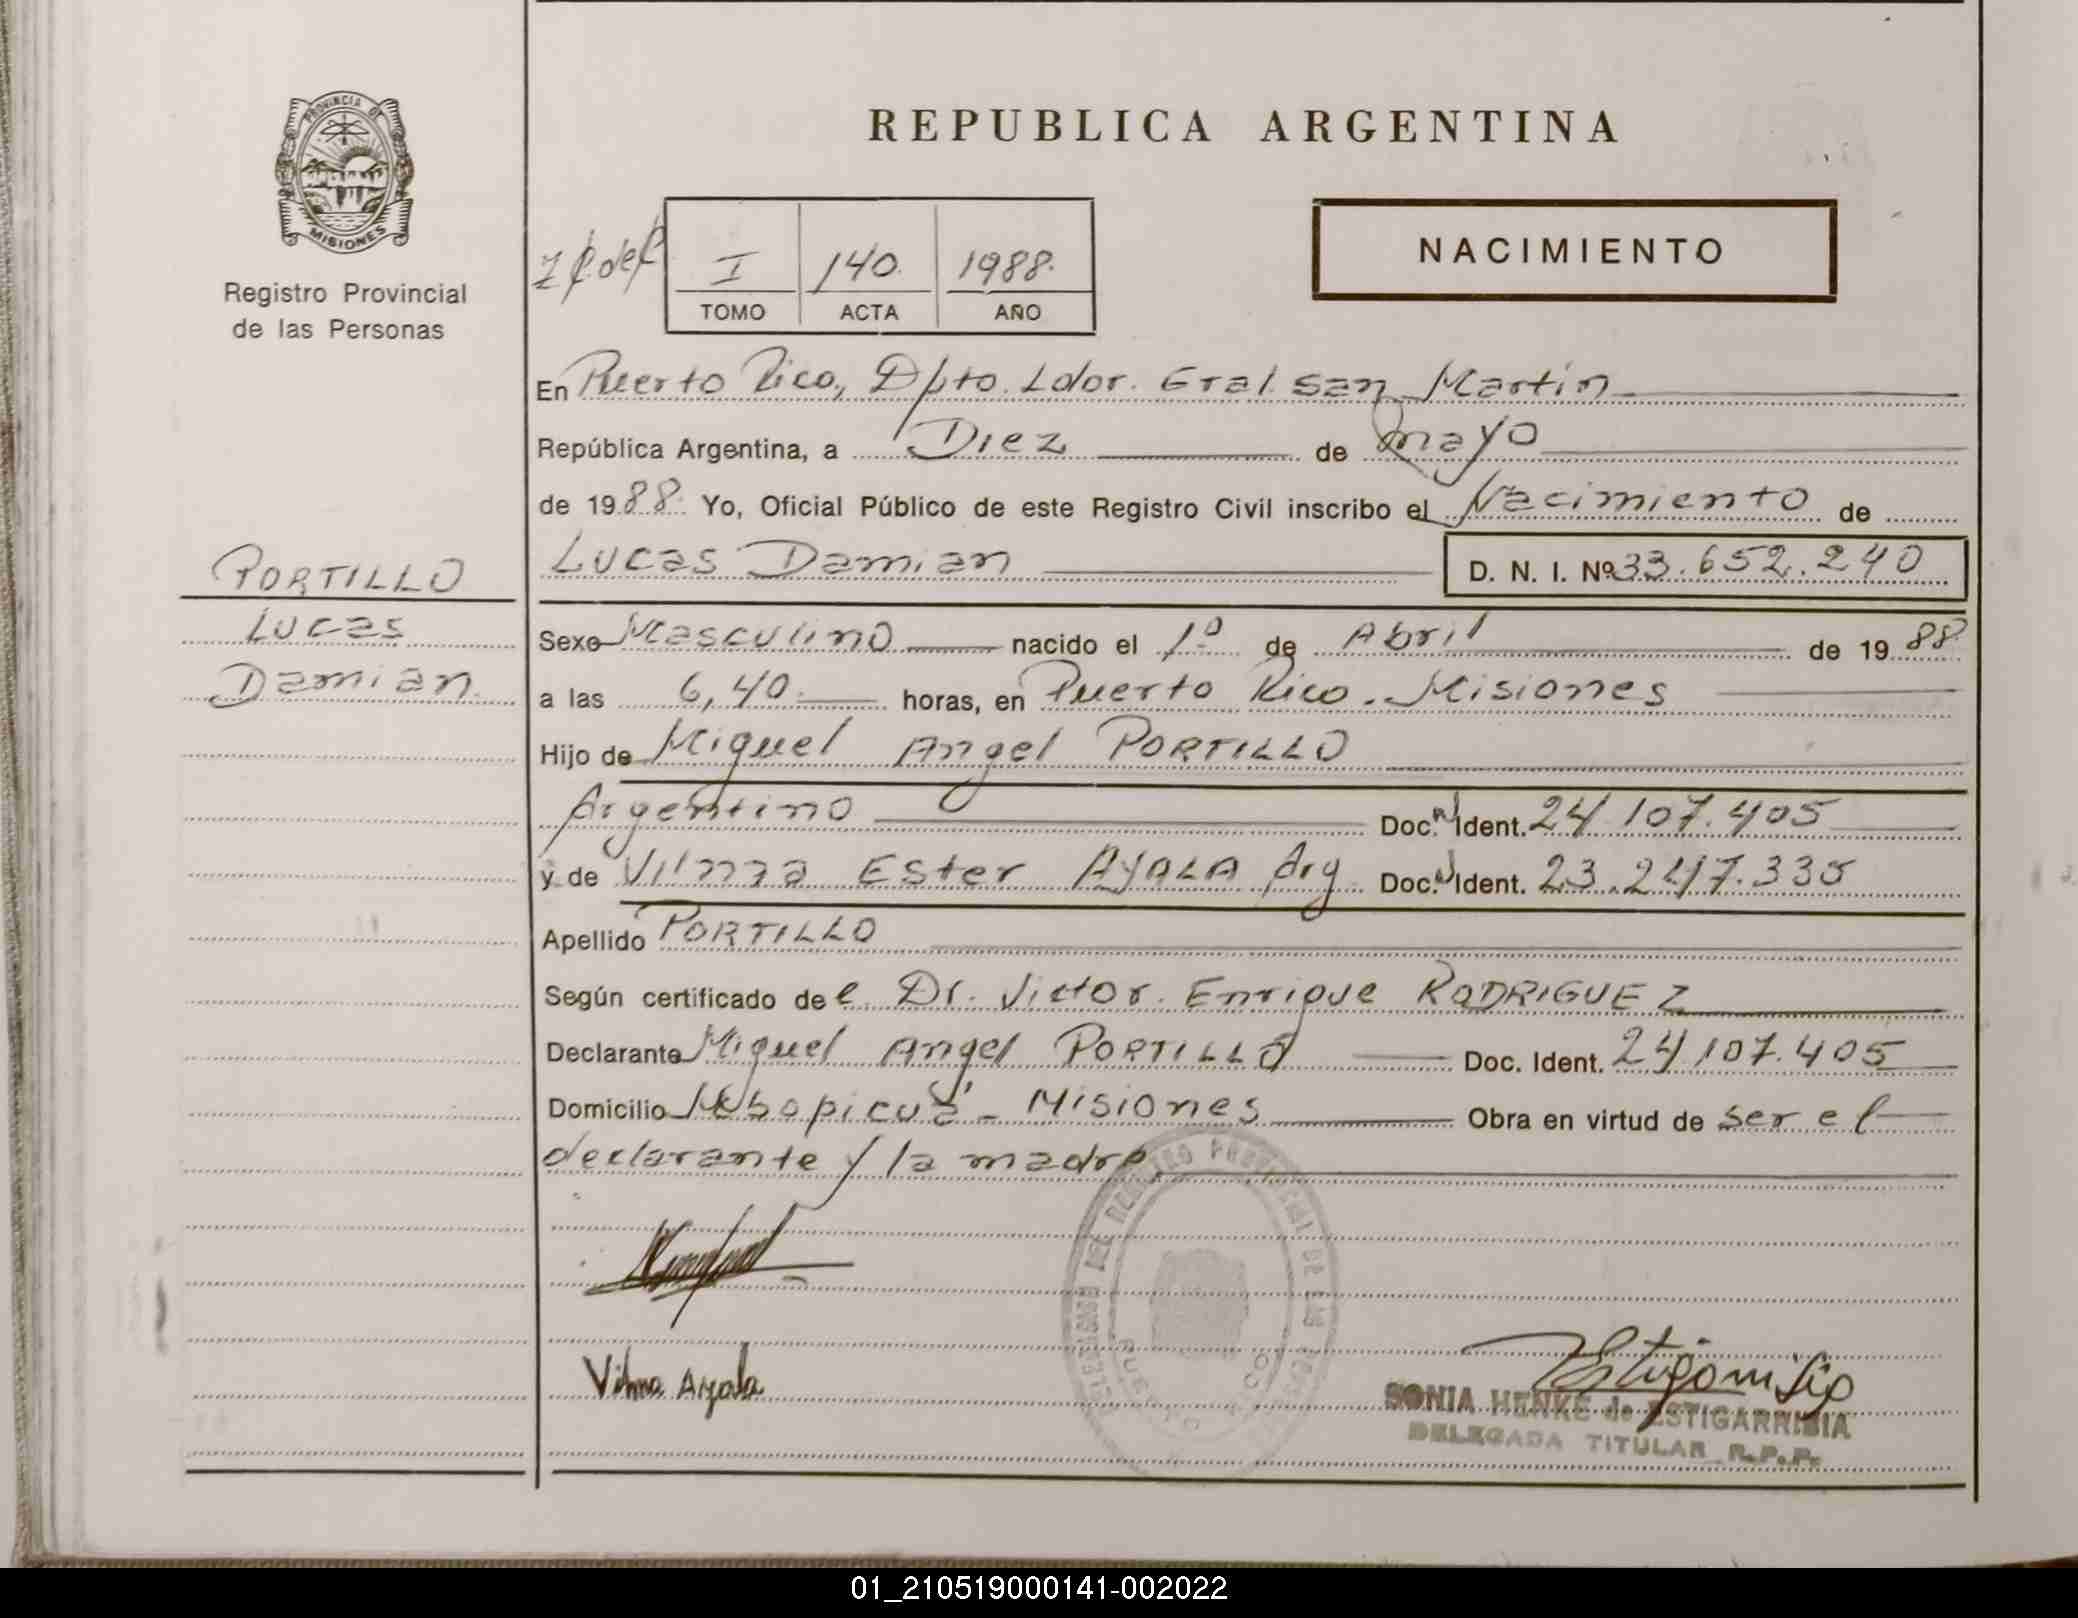 REPUBLICA ARGENTINA
PROVINCIA DE
MISIONES
Registro Provincial
de las Personas
I 140. 1988.
TOMO ACTA AÑO
NACIMIENTO
En Puerto Rico, Dpto. Ldor. Gral. San Martín
República Argentina, a Diez de mayo
de 1988. Yo, Oficial Público de este Registro Civil inscribo el Nacimiento de
Lucas Damian D. N. I. Nº 33.652.240
PORTILLO
Lucas
Damian.
Sexo Masculino nacido el 1º de Abril de 1988
a las 6,40. horas, en Puerto Rico. Misiones
Hijo de Miguel Angel PORTILLO
Argentino Doc. N Ident. 24.107.405
y de Vilma Ester AYALA Arg Doc. N Ident. 23.247.335
Apellido PORTILLO
Según certificado del Dr. Victor Enrique RODRIGUEZ
Declarante Miguel Angel PORTILLO Doc. Ident. 24.107.405
Domicilio Mbopicuá - Misiones Obra en virtud de ser el
declarante y la madre
Vilma Ayala
SONIA HENKE de ESTIGARRIBIA
DELEGADA TITULAR R.P.P.
01_210519000141-002022